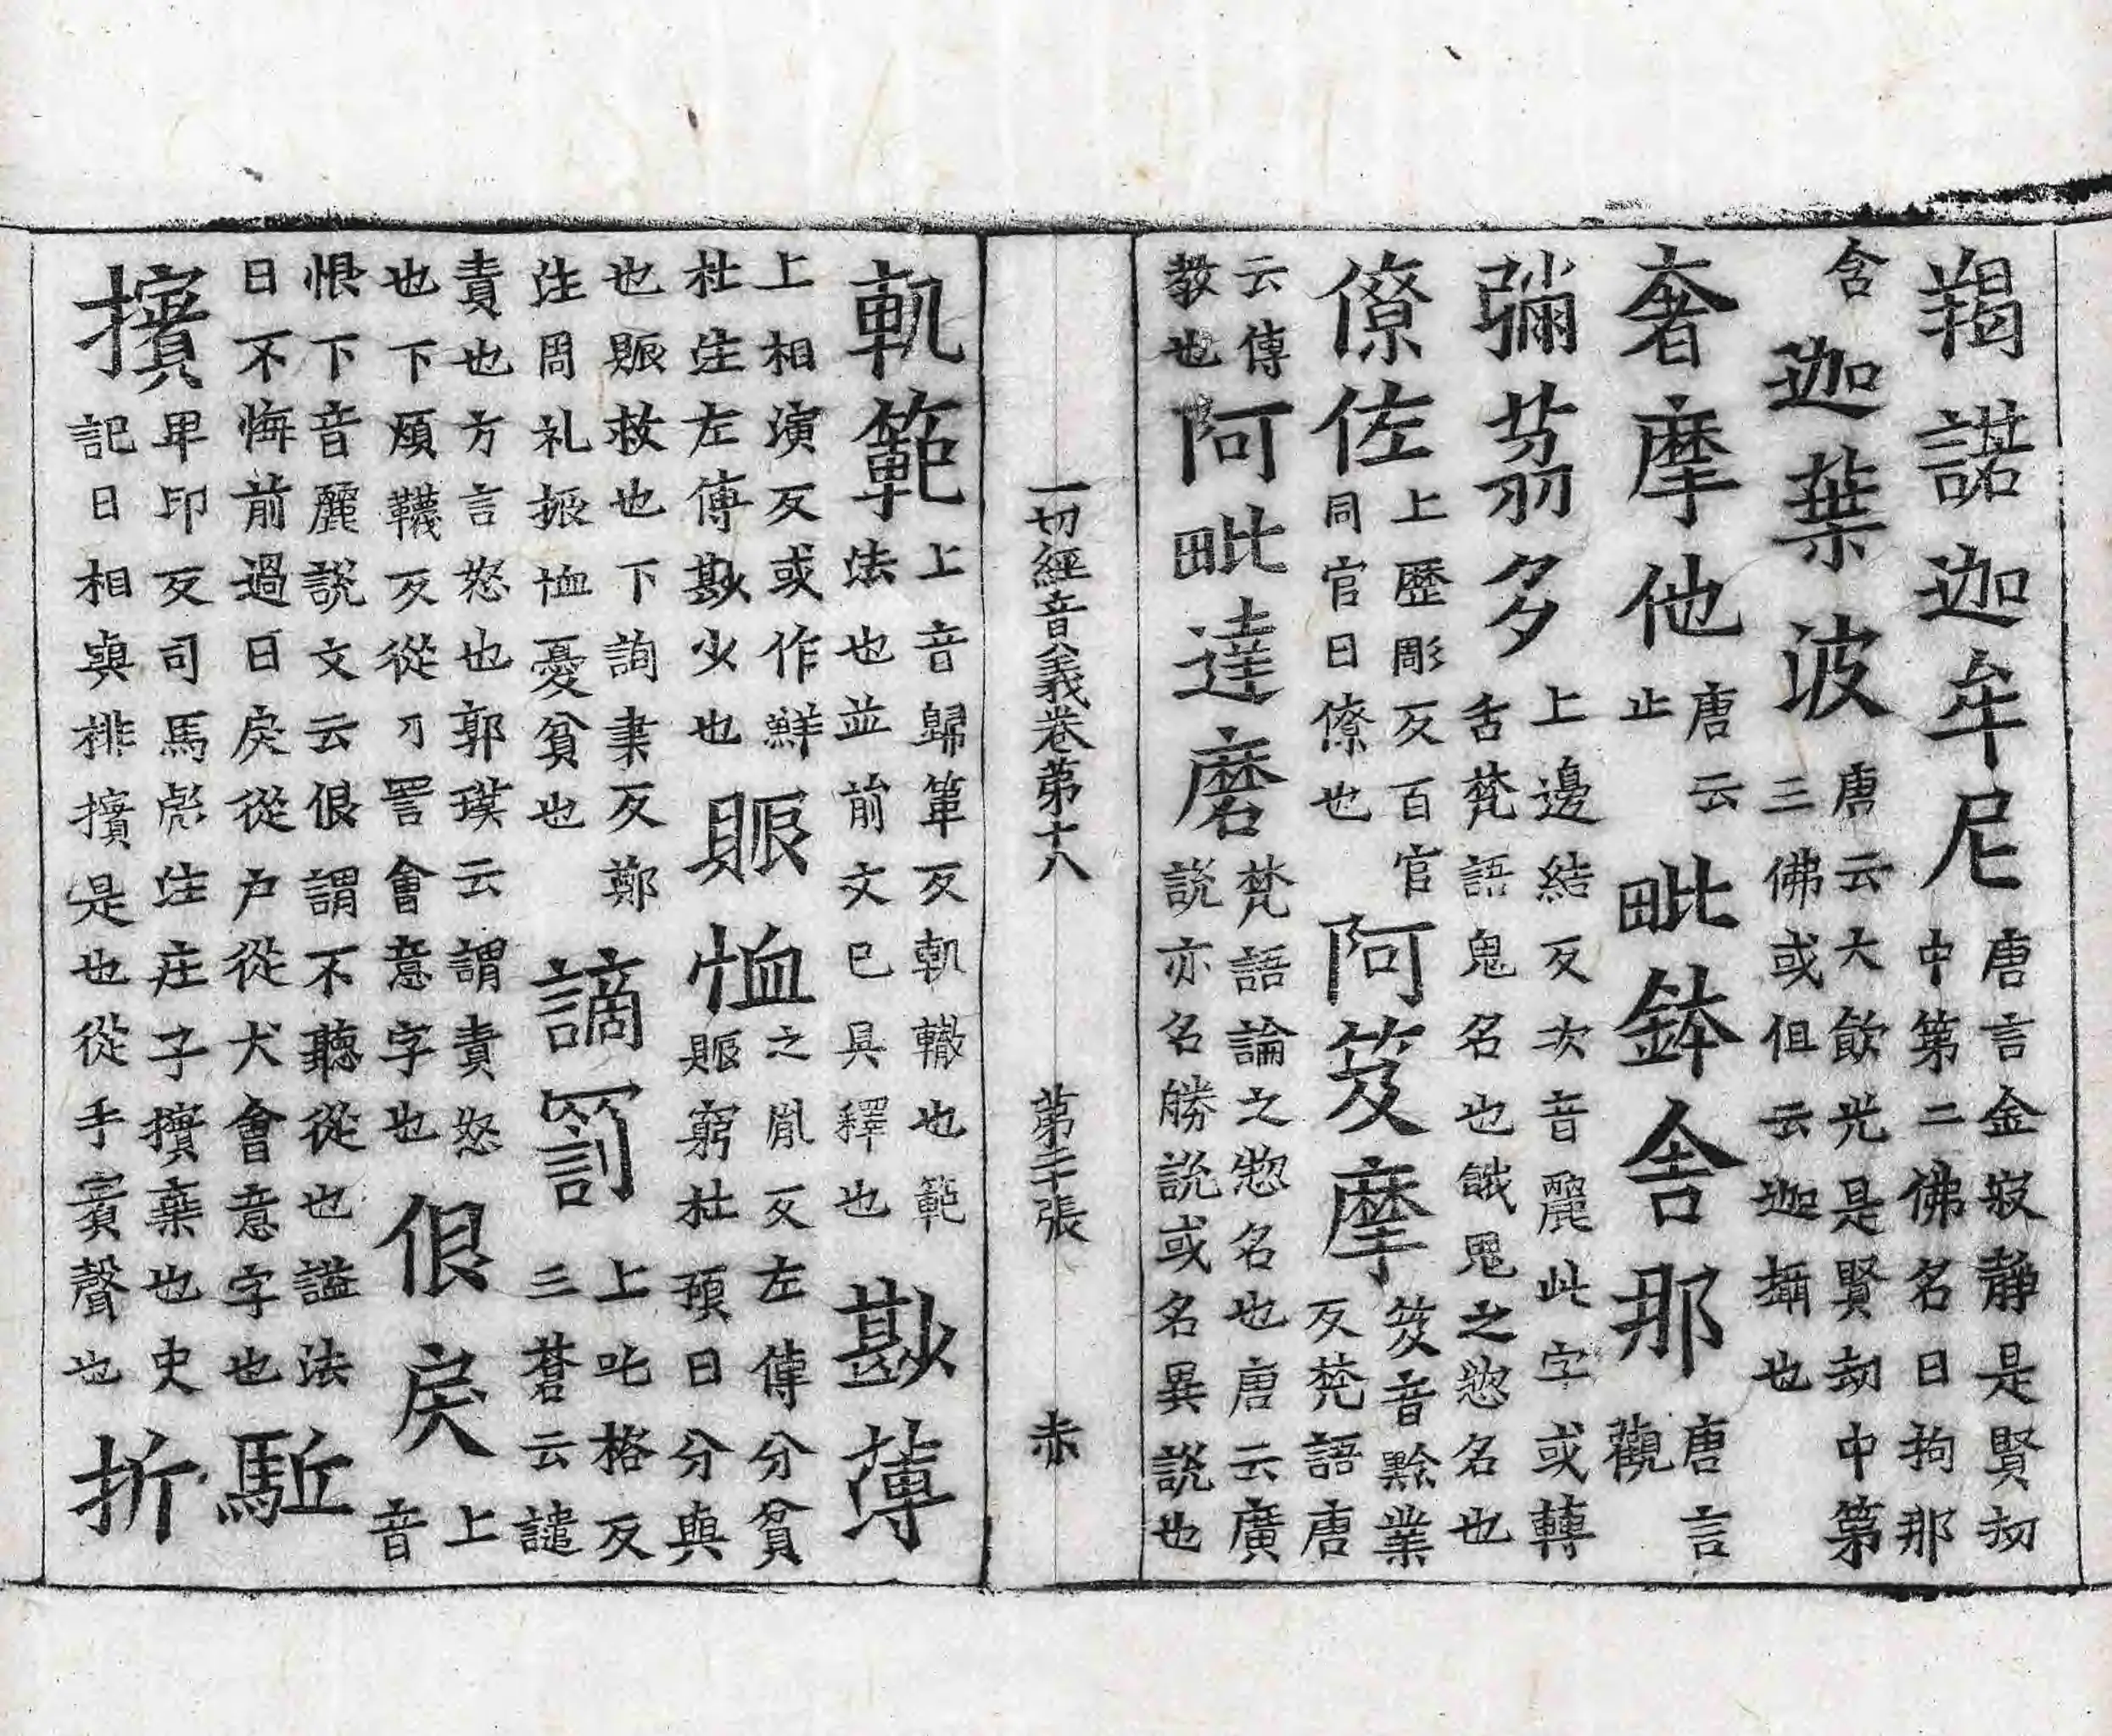 羯諾迦牟尼唐言金寂静是賢劫中第二佛名曰拘那
含迦葉波唐云大飲光是賢劫中第三佛或但云迦攝也
奢摩他唐云止毗鉢舍那唐言觀
彌荔多上邊結反次音麗此字或轉舌梵語鬼名也餓鬼之惣名也
僚佐上歷彫反百官同官曰僚也阿笈摩笈音黔業反梵語唐
云傳教也阿毗達磨梵語論之惣名也唐云廣說亦名勝說或名異說也
一切經音義卷第十八 第二十張 赤
軌範上音歸箄反軌轍也範法也並前文已具釋也尠薄
上相演反或作鮮杜注左傳尠少也賑恤之胤反左傳分貧賑窮杜預曰分與
也賑救也下詢聿反鄭注周礼振恤憂貧也謫罰上吒格反三蒼云譴
責也方言怒也郭璞云謂責怒也下煩韈反從刀詈會意字也佷戾上音
恨下音麗說文云佷謂不聽從也謚法曰不悔前過曰戾從户從犬會意字也駈
擯卑印反司馬彪注庄子擯棄也史記曰相與排擯是也從手賓聲也折